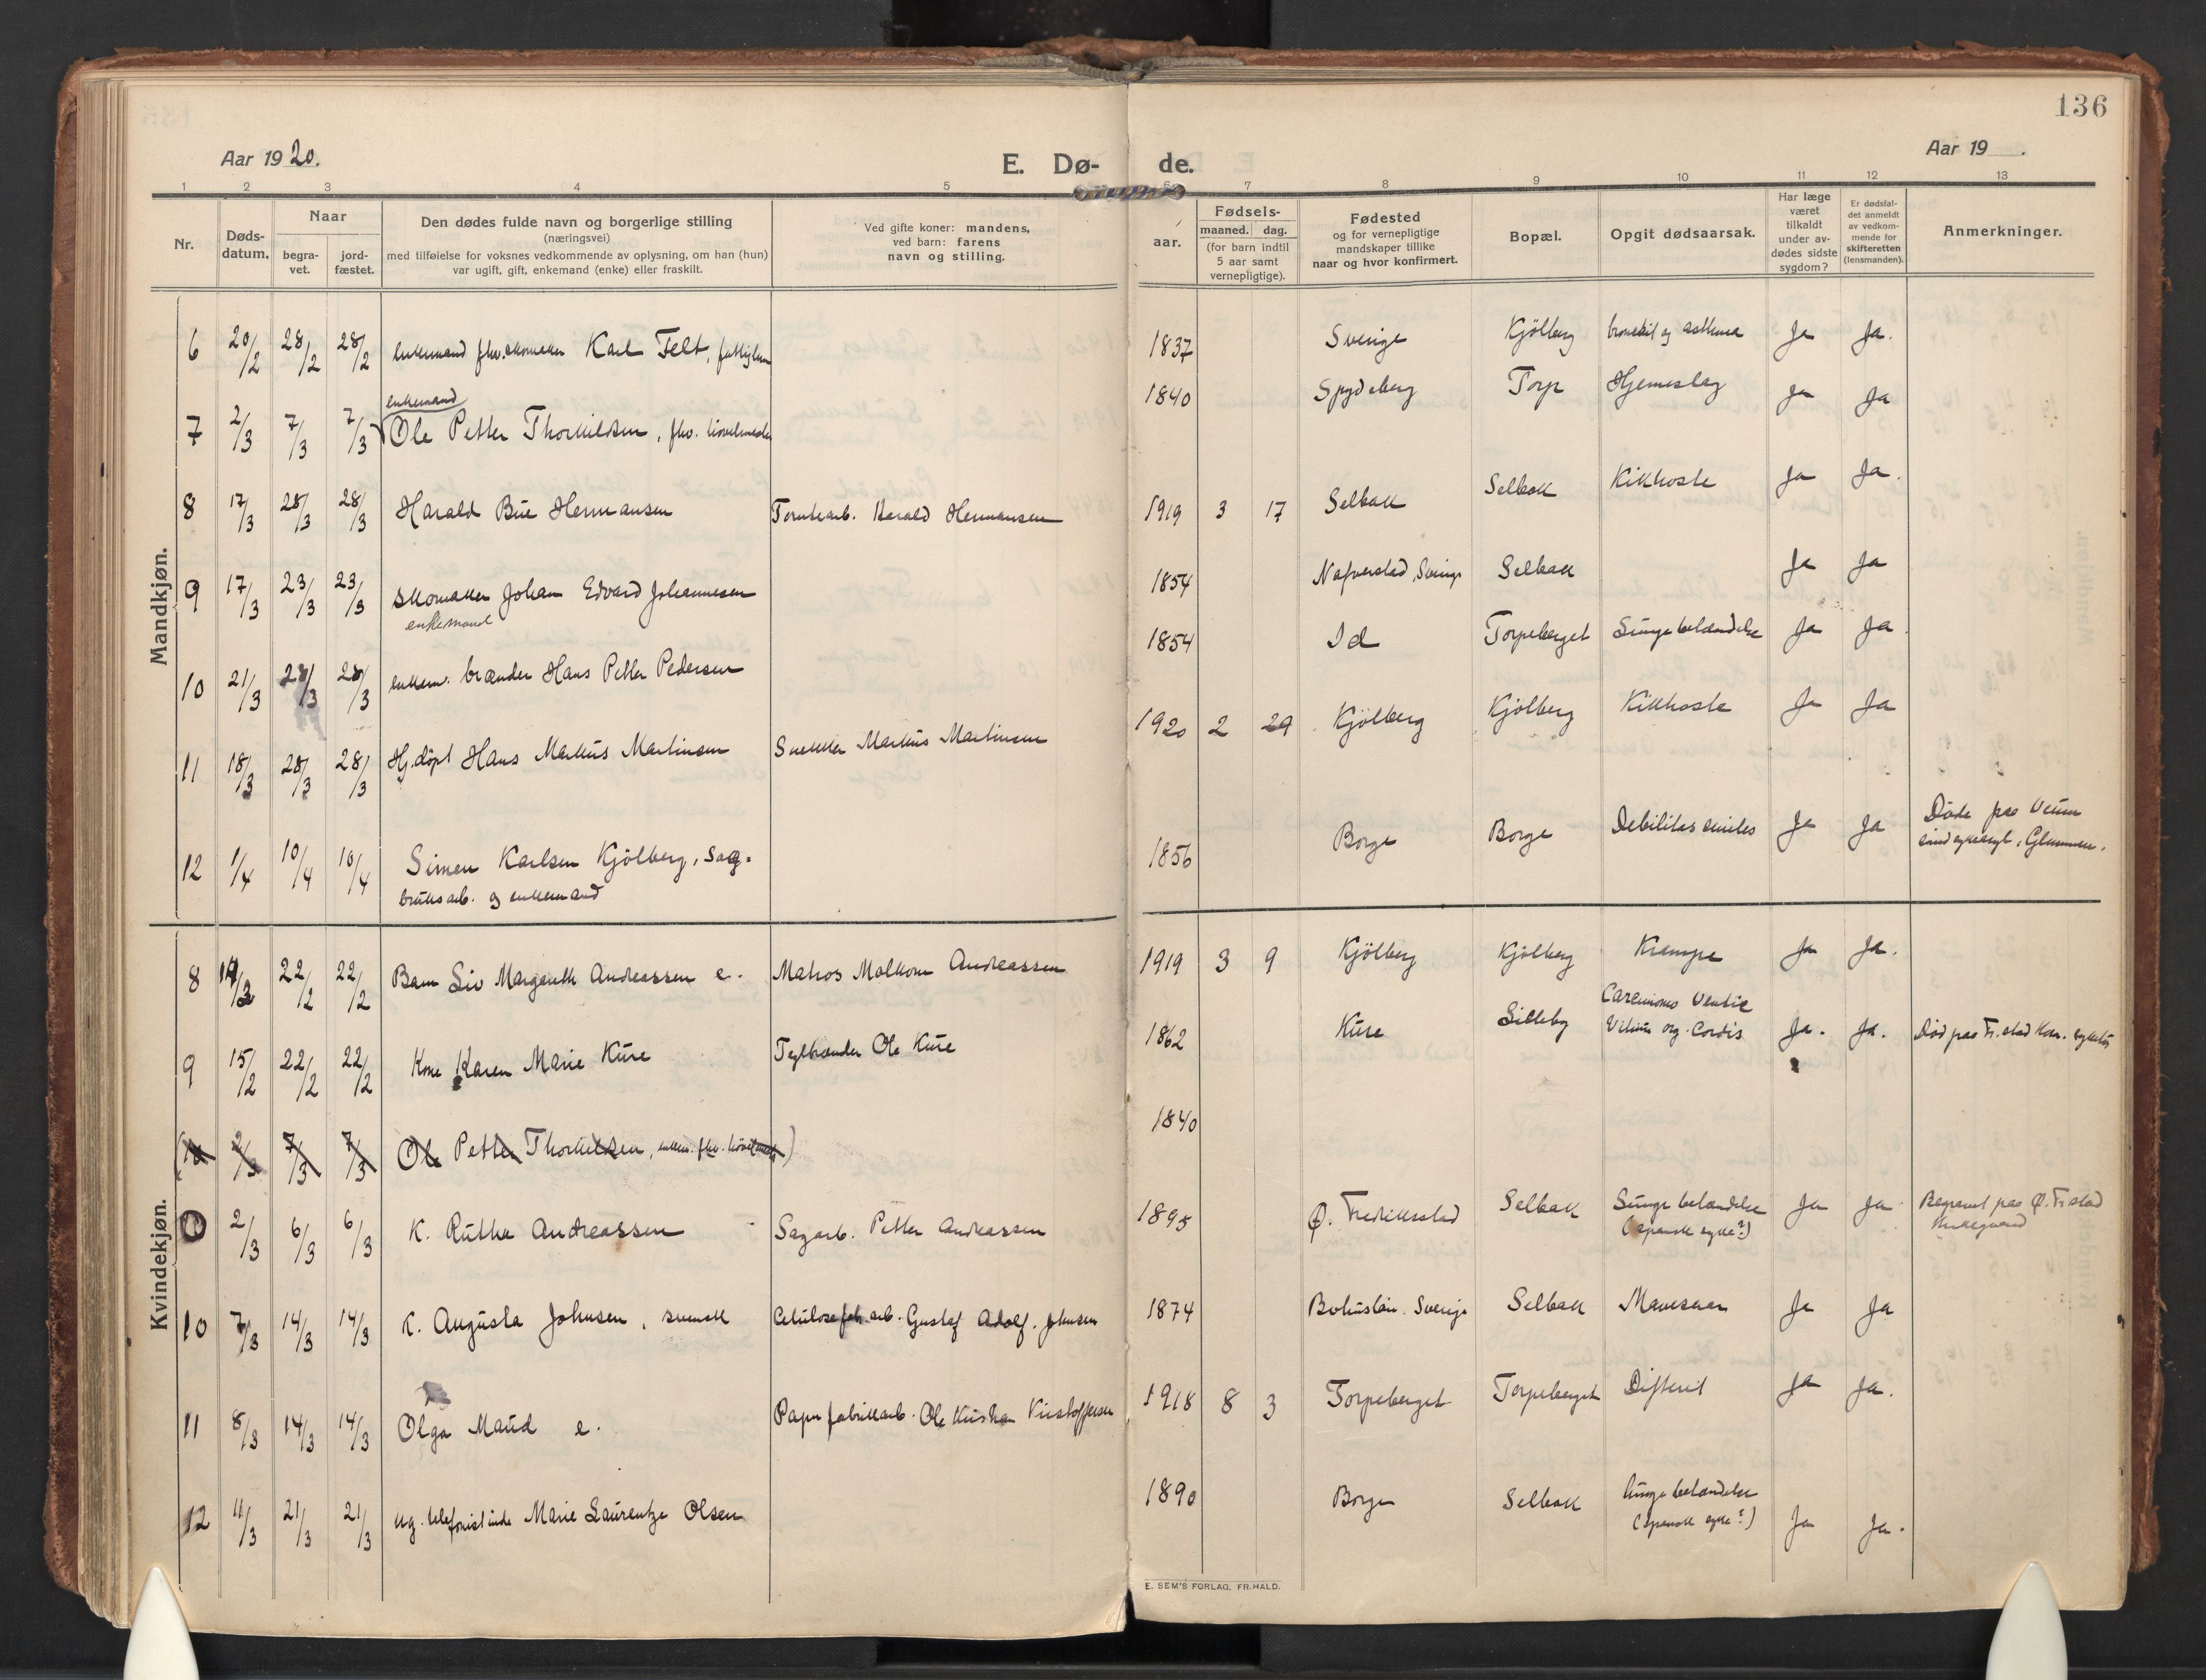 136
Aar 1920.
E. Dø- de.
Aar 19 .
1 2 3 4 5 6 7 8 9 10 11 12 13
Nr.
Døds-
datum.
Naar
begra-
vet.
jord-
fæstet.
Den dødes fulde navn og borgerlige stilling
(næringsvei)
med tilføielse for voksnes vedkommende av oplysning, om han (hun)
var ugift, gift, enkemand (enke) eller fraskilt.
Ved gifte koner: mandens,
ved barn: farens
navn og stilling.
aar.
Fødsels-
maaned. dag.
(for barn indtil
5 aar samt
vernepligtige).
Fødested
og for vernepligtige
mandskaper tillike
naar og hvor konfirmert.
Bopæl.
Opgit dødsaarsak.
Har læge
været
tilkaldt
under av-
dødes sidste
sygdom?
Er dødsfal-
det anmeldt
av vedkom-
mende for
skifteretten
(lensmanden).
Anmerkninger.
Mandkjøn.
6 20/2 28/2 28/2 enkemand fhv. skomaker Karl Felt, 1837 Sverige Kjölberg bronchit og asthma Ja Ja.
enkemand
7 2/3 7/3 7/3 Ole Petter Thorkildsen, fhv. 1840 Spydeberg Torp Hjerneslag Ja Ja
8 17/3 28/3 28/3 Harald Bue Hermansen Harald Hermansen 1919 3 17 Selbak Selbak Kikhoste Ja Ja.
9 17/3 23/3 23/3 skomaker Johan Edvard Johannesen 1854 Nafverstad, Sverige Selbak Ja Ja
enkemand
10 21/3 28/3 28/3 enkem. brænder Hans Petter Pedersen 1854 Id Torpeberget Lungebetændelse Ja Ja.
11 18/3 28/3 28/3 Hj.döpt Hans Markus Martinsen Snekker Markus Martinsen 1920 2 29 Kjölberg Kjölberg Kikhoste Ja Ja
12 1/4 10/4 10/4 Simen Karlsen Kjölberg, sag-
bruksarb. og enkemand 1856 Borge Borge Debilitas senilis Ja Ja Döde paa Veum
sindsykeasyl, Glemmen.
Kvindekjøn.
8 14/2 22/2 22/2 Barn Liv Margareth Andreassen e. Matros Malkom Andreassen 1919 3 9 Kjölberg Kjölberg Krampe Ja Ja.
9 15/2 22/2 22/2 Kone Karen Marie Kure Teglbrænder Ole Kure 1862 Kure Lilleby Carcinoma Ventic
Vitium org. Cordis Ja. Ja. Död paa Fr.stad Kom. sykehus
(10 2/3 7/3 7/3 Ole Petter Thorkildsen, enkem. fhv. ) 1840
2/3 6/3 6/3 K. Rutha Andreassen Sagarb. Petter Andreassen 1895 Ø. Fredriksstad Selbak Lungebetændelse
(spansk syke?) Ja Ja Begravet paa Ø. Fr.stad
kirkegaard
10 7/3 14/3 14/3 K. Augusta Johnsen, svensk Celulosefab. arb. Gustaf Adolf Johnsen 1874 Bohuslän. Sverige Selbak Mavesaar Ja Ja
11 8/3 14/3 14/3 Olga Maud e. Papirfabrikarb. Ole Kristian Kristoffersen 1918 8 3 Torpeberget Torpeberget Difterit Ja Ja.
12 11/3 21/3 21/3 ug. telefonistinde Marie Laurentze Olsen 1890 Borge Selbak Lungebetændelse
(spansk syke?) Ja Ja.
E. SEM'S FORLAG, FR.HALD.